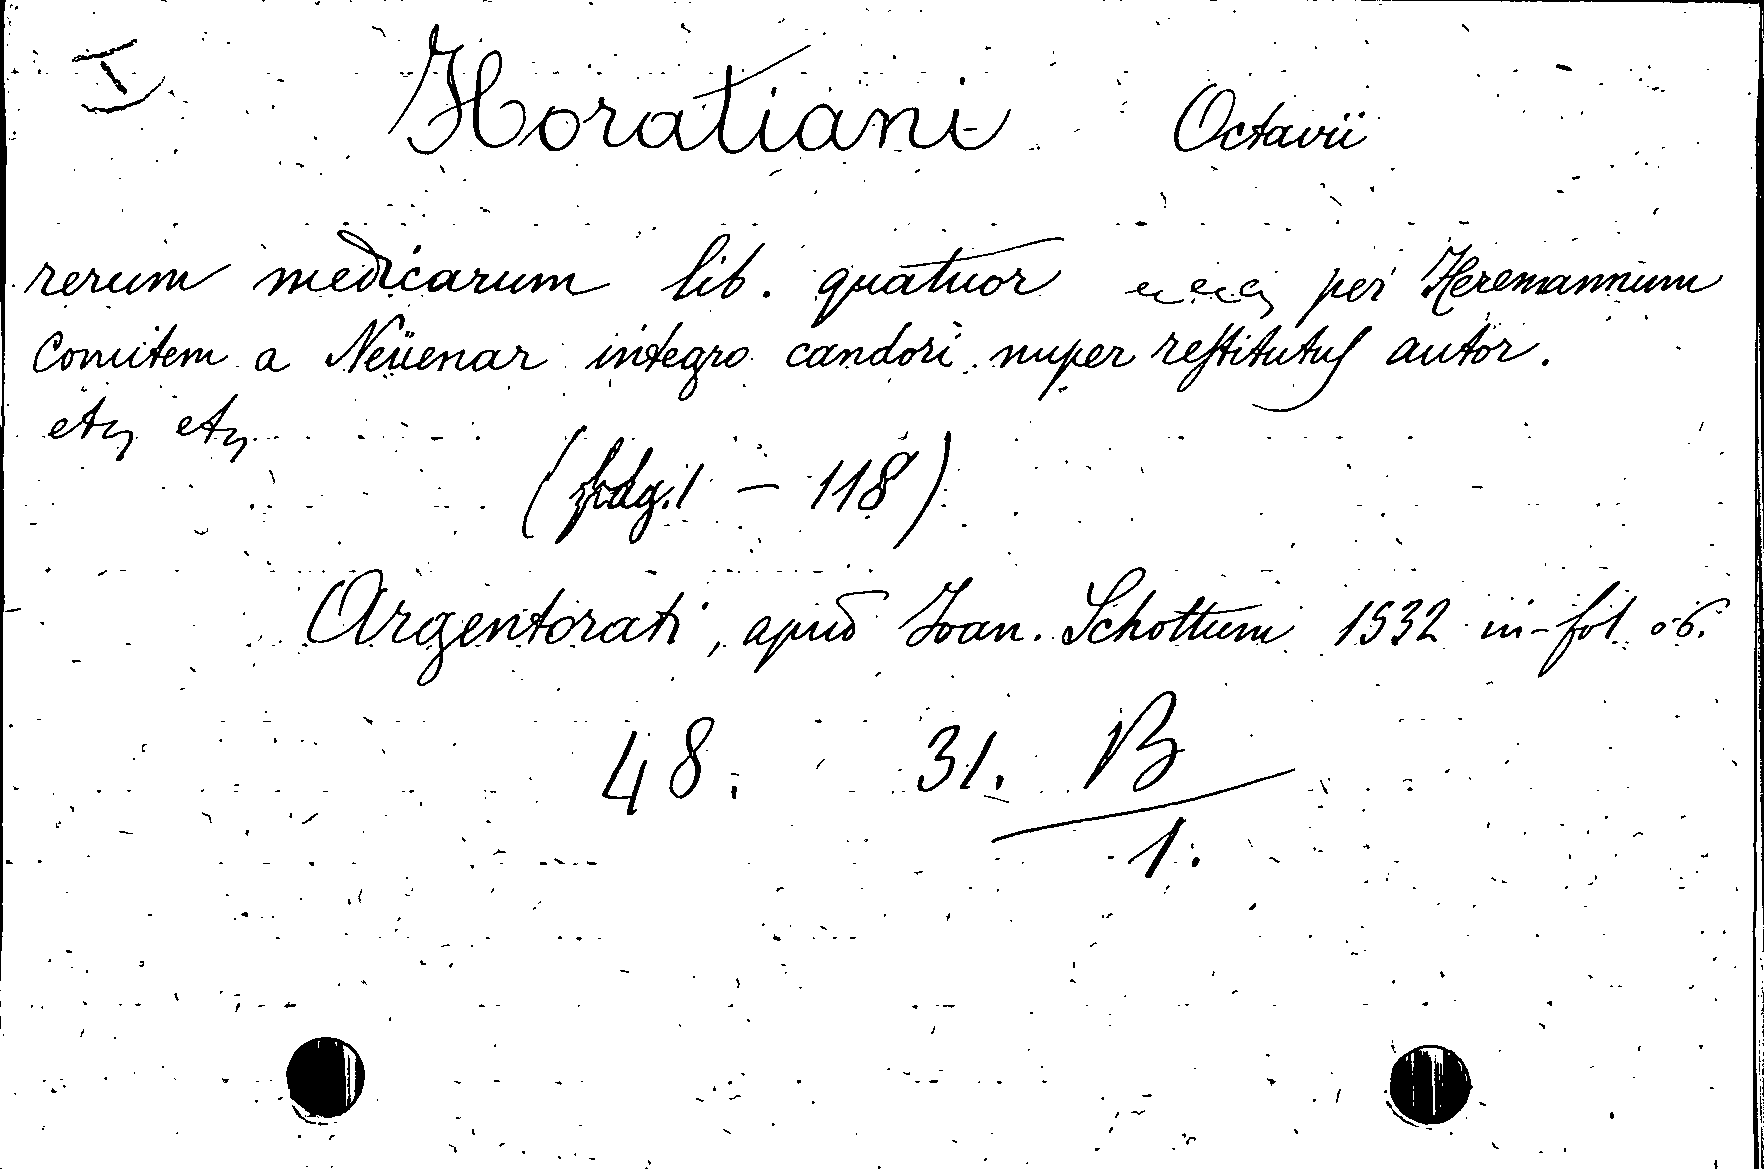 I Horatiani Octavii
rerum medicarum lib. quatuor per Heremannum
Comitem a Neüenar integro candori nuper restitutus autor.
etc etc
(pag. 1 – 118)
Argentorati, apud Joan. Schottum 1532 in-fol
48. 31. B
1.